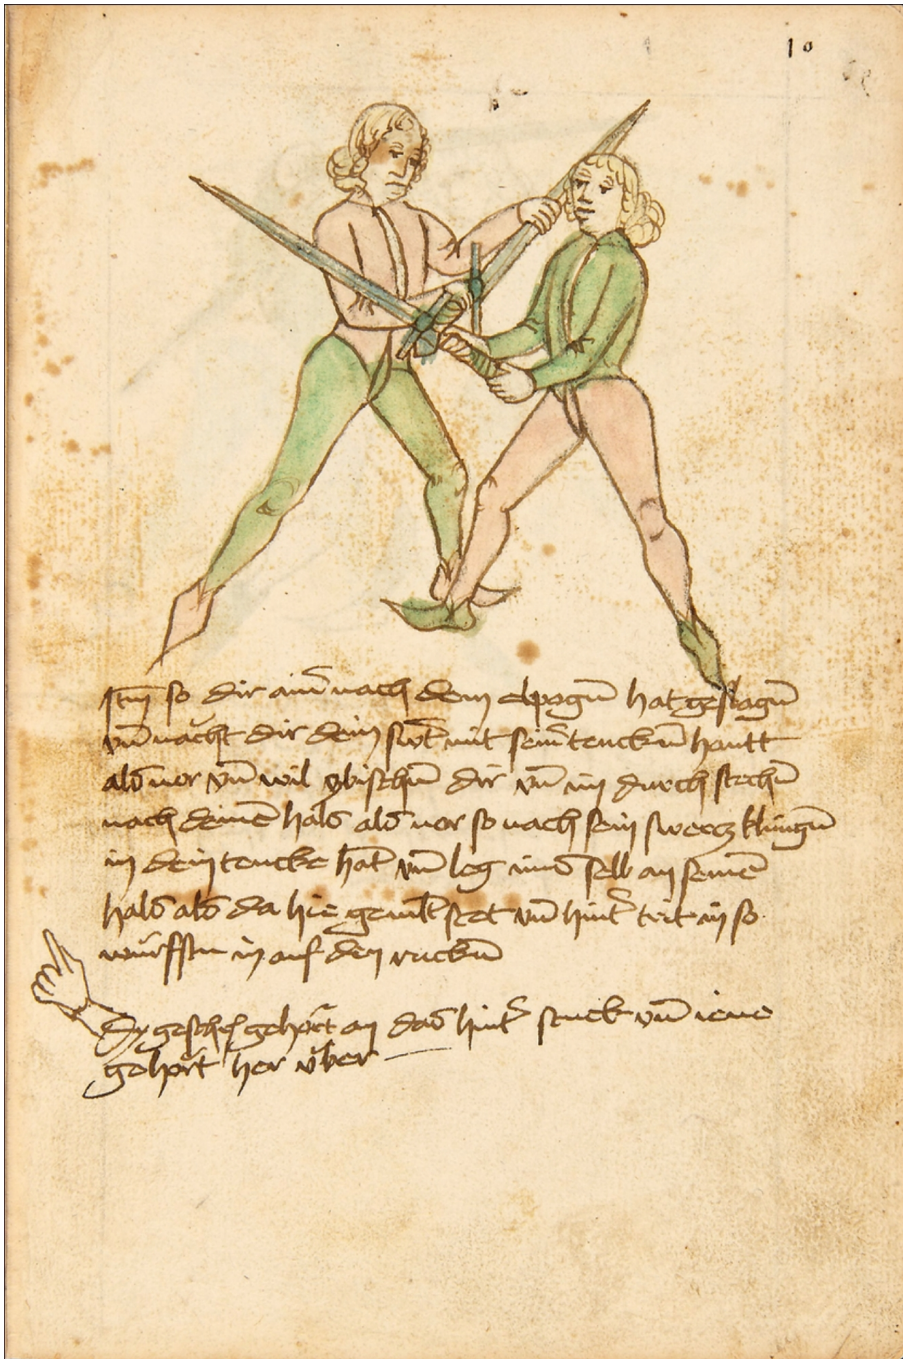 10
Itm̄ so dir ain̄ nach dem elpogn̄ hat geslagn̄
vn̄ dir dein swt̄ mit seīr tenckn̄ hantt
als vor vn̄ wil dir vn̄ in durch stechn̄
nach deinē hals als vor so nach sein swercz klingn̄
in dein tencke hāt vn̄ leg ims selb an seinē
hals als da hie gemalt stet vn̄ hint̄ trit in so
wurff in auf den ruckn̄
dy geschrift gehört an das hint̄ stuck vn̄ iene
gehört her über